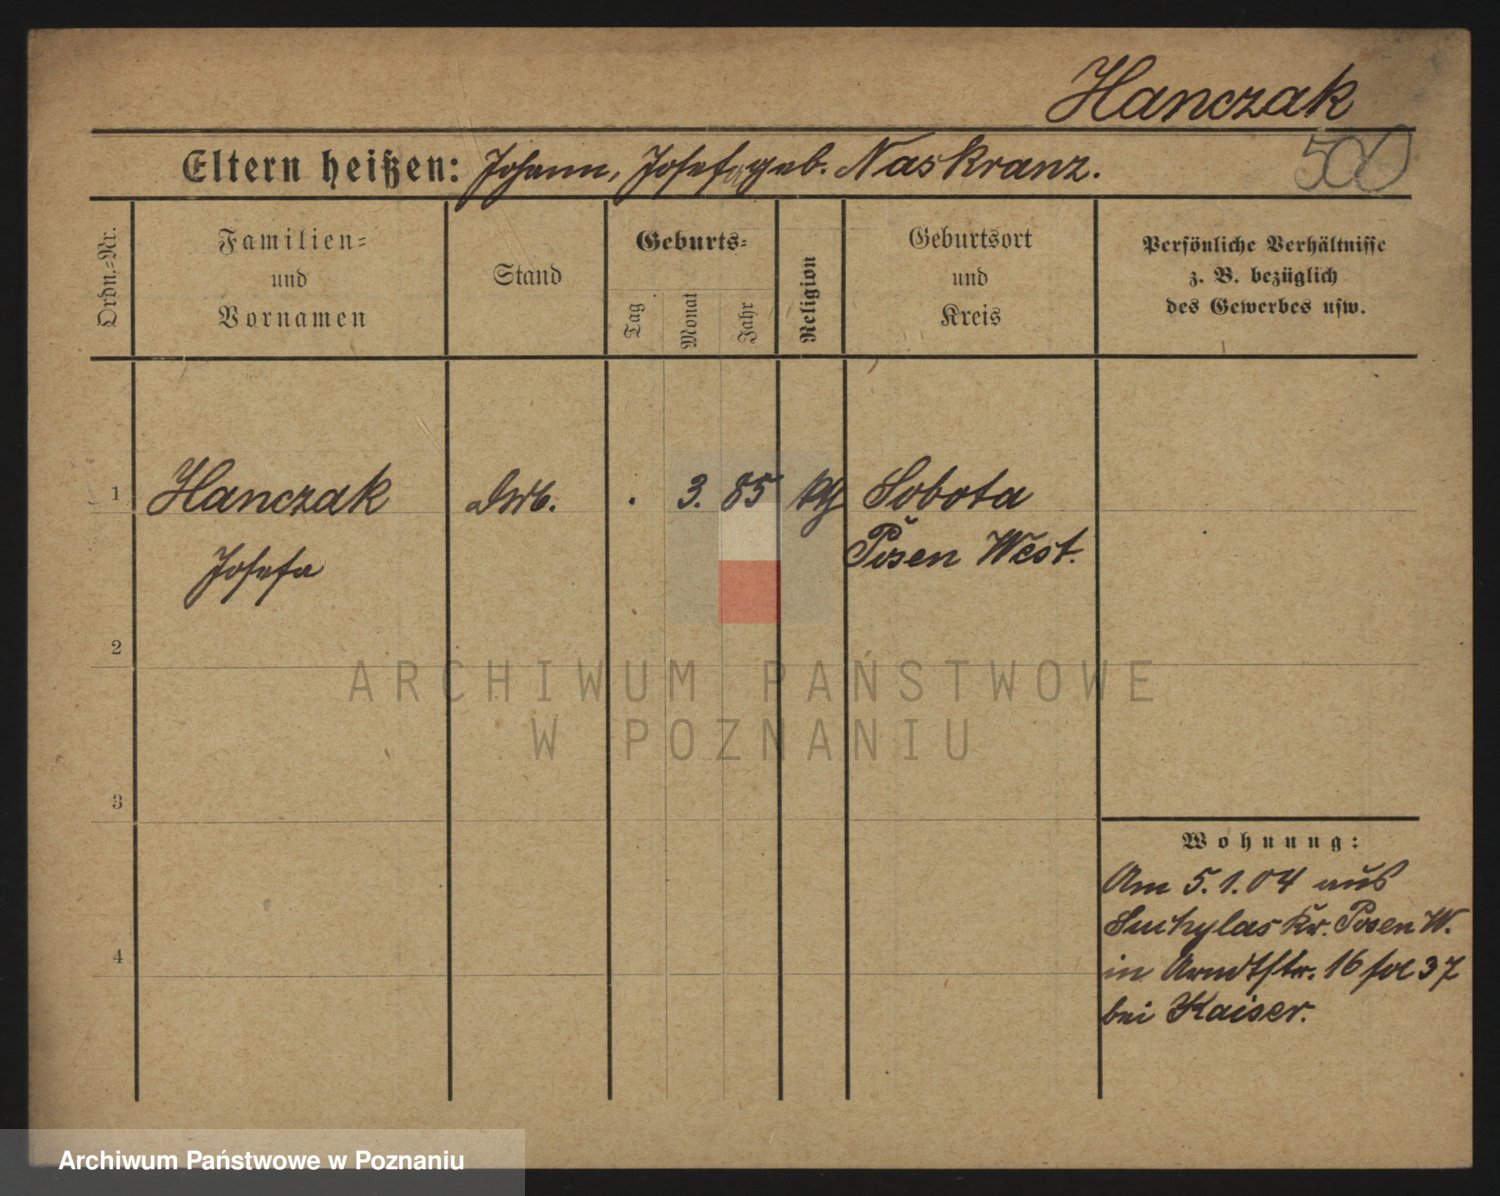 Hanczak
500
Eltern heißen: Johann, Josefa geb. Naskranz.
Ordn.=Nr.
Familien=
und
Vornamen
Stand
Geburts=
Tag
Monat
Jahr
Religion
Geburtsort
und
Kreis
Persönliche Verhältnisse
z. B. bezüglich
des Gewerbes usw.
1 Hanczak . 3. 85 kth Sobota
Josefa Posen West.
2
3
4
Wohnung:
Am 5.1.04 aus
Suchylas Kr. Posen W.
in Arndtstr. 16 fol 37
bei Kaiser.
ARCHIWUM PAŃSTWOWE
W POZNANIU
Archiwum Państwowe w Poznaniu